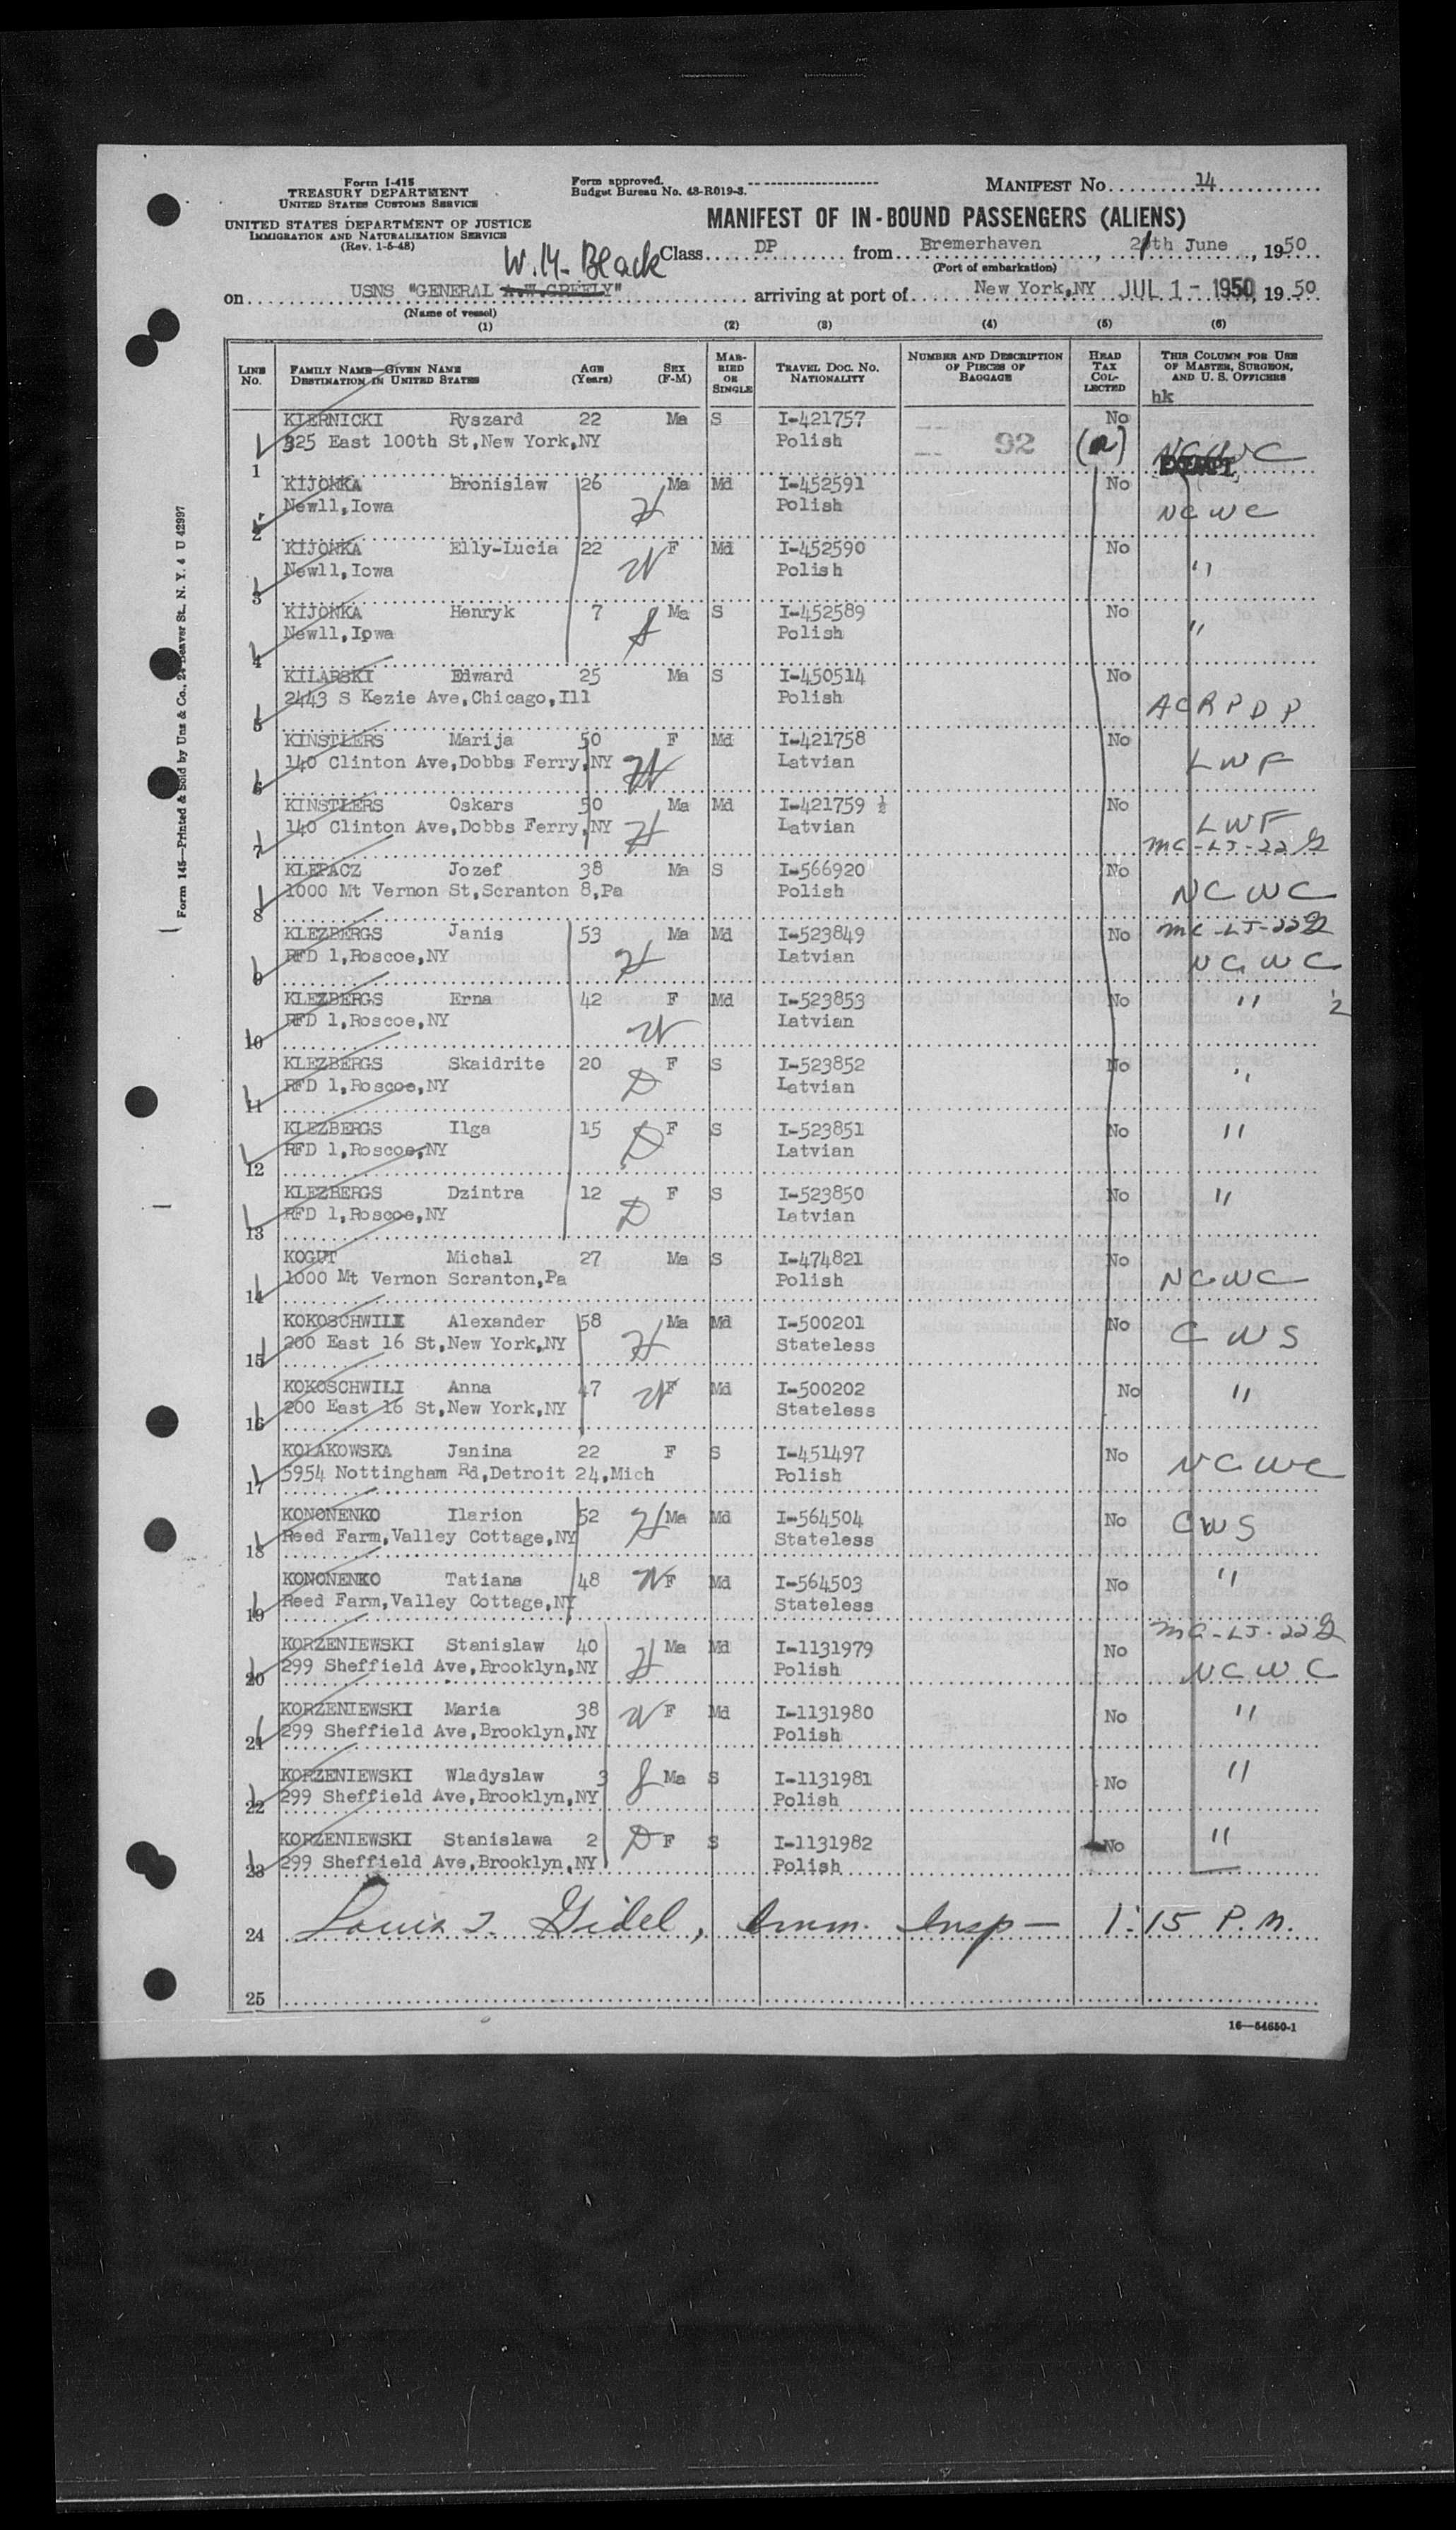 Form I-415
TREASURY DEPARTMENT
UNITED STATES CUSTOMS SERVICE
UNITED STATES DEPARTMENT OF JUSTICE
IMMIGRATION AND NATURALIZATION SERVICE
(Rev. 1-5-48)
Form approved.
Budget Bureau No. 43-R019-3.
MANIFEST NO. 14
MANIFEST OF IN-BOUND PASSENGERS (ALIENS)
W. M. Black
Class DP from Bremerhaven, 21th June, 1950
(Port of embarkation)
on USNS "GENERAL A.W.GREELY" arriving at port of New York,NY JUL 1 - 1950, 19 50
(Name of vessel)
(1) (2) (3) (4) (5) (6)
LINE NO. FAMILY NAME—GIVEN NAME DESTINATION IN UNITED STATES AGE (Years) SEX (F-M) MARRIED OR SINGLE TRAVEL DOC. NO. NATIONALITY NUMBER AND DESCRIPTION OF PIECES OF BAGGAGE HEAD TAX COLLECTED THIS COLUMN FOR USE OF MASTER, SURGEON, AND U. S. OFFICERS
hk
KIERNICKI Ryszard 22 Ma S I-421757 No
1 325 East 100th St,New York,NY Polish 92 NCWC EXEMPT
KIJONKA Bronislaw 26 H Ma Md I-452591 No
2 Newll,Iowa Polish NCWC
KIJONKA Elly-Lucia 22 W F Md I-452590 No
3 Newll,Iowa Polish "
KIJONKA Henryk 7 S Ma S I-452589 No
4 Newll,Iowa Polish "
KILARSKI Edward 25 Ma S I-450514 No
5 2443 S Kezie Ave,Chicago,Ill Polish ACRPDP
KINSTLERS Marija 50 F Md I-421758 No
6 140 Clinton Ave,Dobbs Ferry,NY W Latvian LWF
KINSTLERS Oskars 50 Ma Md I-421759 ½ No
7 140 Clinton Ave,Dobbs Ferry,NY H Latvian LWF
MC-LJ-22
KLEPACZ Jozef 38 Ma S I-566920 No
8 1000 Mt Vernon St,Scranton 8,Pa Polish NCWC
KLEZBERGS Janis 53 Ma Md I-523849 No MC-LJ-22
9 RFD 1,Roscoe,NY H Latvian NCWC
KLEZBERGS Erna 42 F Md I-523853 No " ½
10 RFD 1,Roscoe,NY W Latvian
KLEZBERGS Skaidrite 20 F S I-523852 No
11 RFD 1,Roscoe,NY D Latvian "
KLEZBERGS Ilga 15 D F S I-523851 No "
12 RFD 1,Roscoe,NY Latvian
KLEZBERGS Dzintra 12 F S I-523850 No "
13 RFD 1,Roscoe,NY D Latvian
KOGUT Michal 27 Ma S I-474821 No
14 1000 Mt Vernon Scranton,Pa Polish NCWC
KOKOSCHWILI Alexander 58 Ma Md I-500201 No CWS
15 200 East 16 St,New York,NY H Stateless
KOKOSCHWILI Anna 47 W F Md I-500202 No "
16 200 East 16 St,New York,NY Stateless
KOLAKOWSKA Janina 22 F S I-451497 No NCWC
17 5954 Nottingham Rd,Detroit 24,Mich Polish
KONONENKO Ilarion 52 H Ma Md I-564504 No CWS
18 Reed Farm,Valley Cottage,NY Stateless
KONONENKO Tatiana 48 W F Md I-564503 No "
19 Reed Farm,Valley Cottage,NY Stateless
MC-LJ-22
KORZENIEWSKI Stanislaw 40 H Ma Md I-1131979 No
20 299 Sheffield Ave,Brooklyn,NY Polish NCWC
KORZENIEWSKI Maria 38 W F Md I-1131980 No "
21 299 Sheffield Ave,Brooklyn,NY Polish
KORZENIEWSKI Wladyslaw 3 S Ma S I-1131981 No "
22 299 Sheffield Ave,Brooklyn,NY Polish
KORZENIEWSKI Stanislawa 2 D F S I-1131982 No "
23 299 Sheffield Ave,Brooklyn,NY Polish
24 Louis J. Gidel, Imm. Insp — 1:15 P.M.
25
16—54650-1
Form 145—Printed & Sold by Unz & Co., 24 Beaver St., N. Y. 4 U 42997